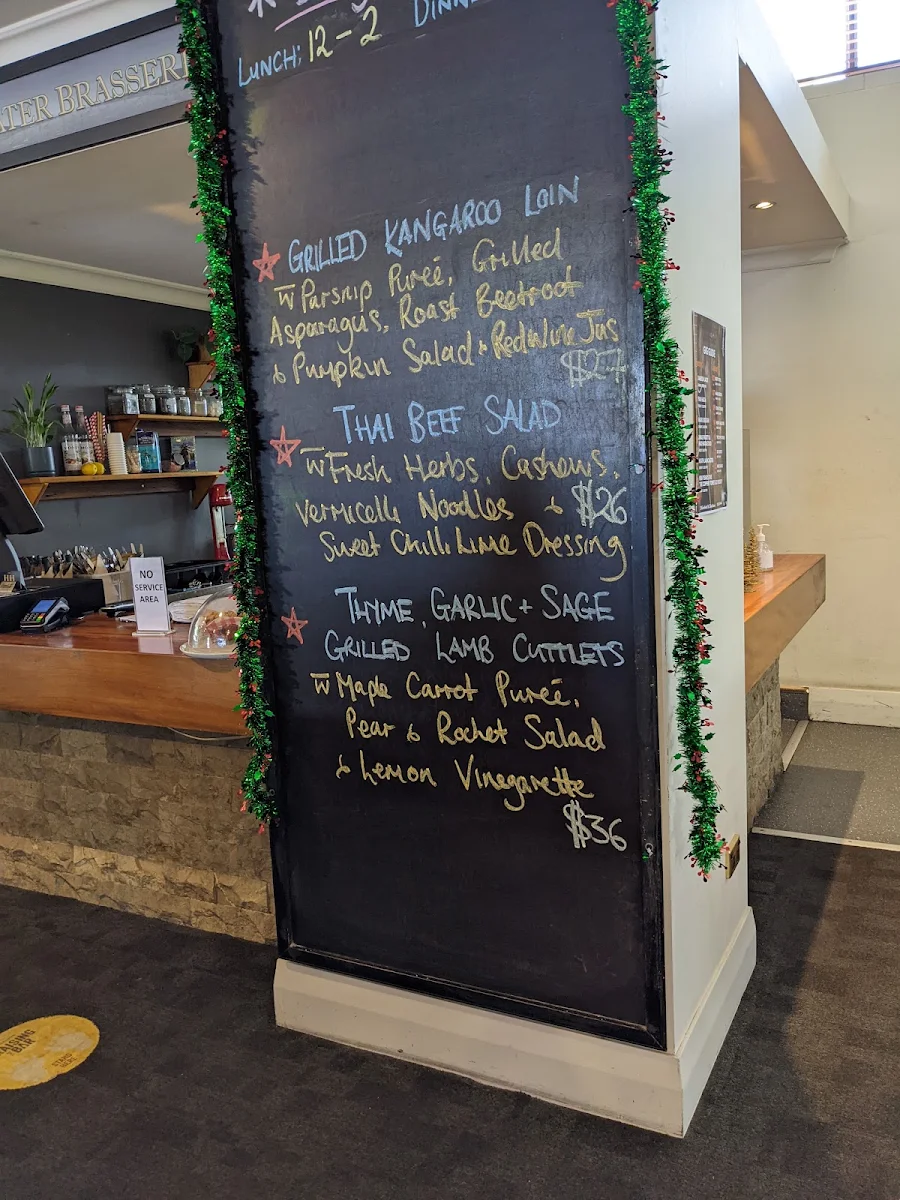 LUNCH: 12-2 DINNE
TER BRASSERI
GRILLED KANGAROO LOIN
w̅ Parsnip Pureé, Grilled
Asparagus, Roast Beetroot
& Pumpkin Salad + Red Wine Jus
$27
THAI BEEF SALAD
w̅ Fresh Herbs, Cashews,
Vermicelli Noodles & $26
Sweet Chilli Lime Dressing
THYME, GARLIC + SAGE
GRILLED LAMB CUTTLETS
w̅ Maple Carrot Pureé,
Pear & Rocket Salad
& Lemon Vinegarette
$36
NO
SERVICE
AREA
RAISING
BAR
START
HERE